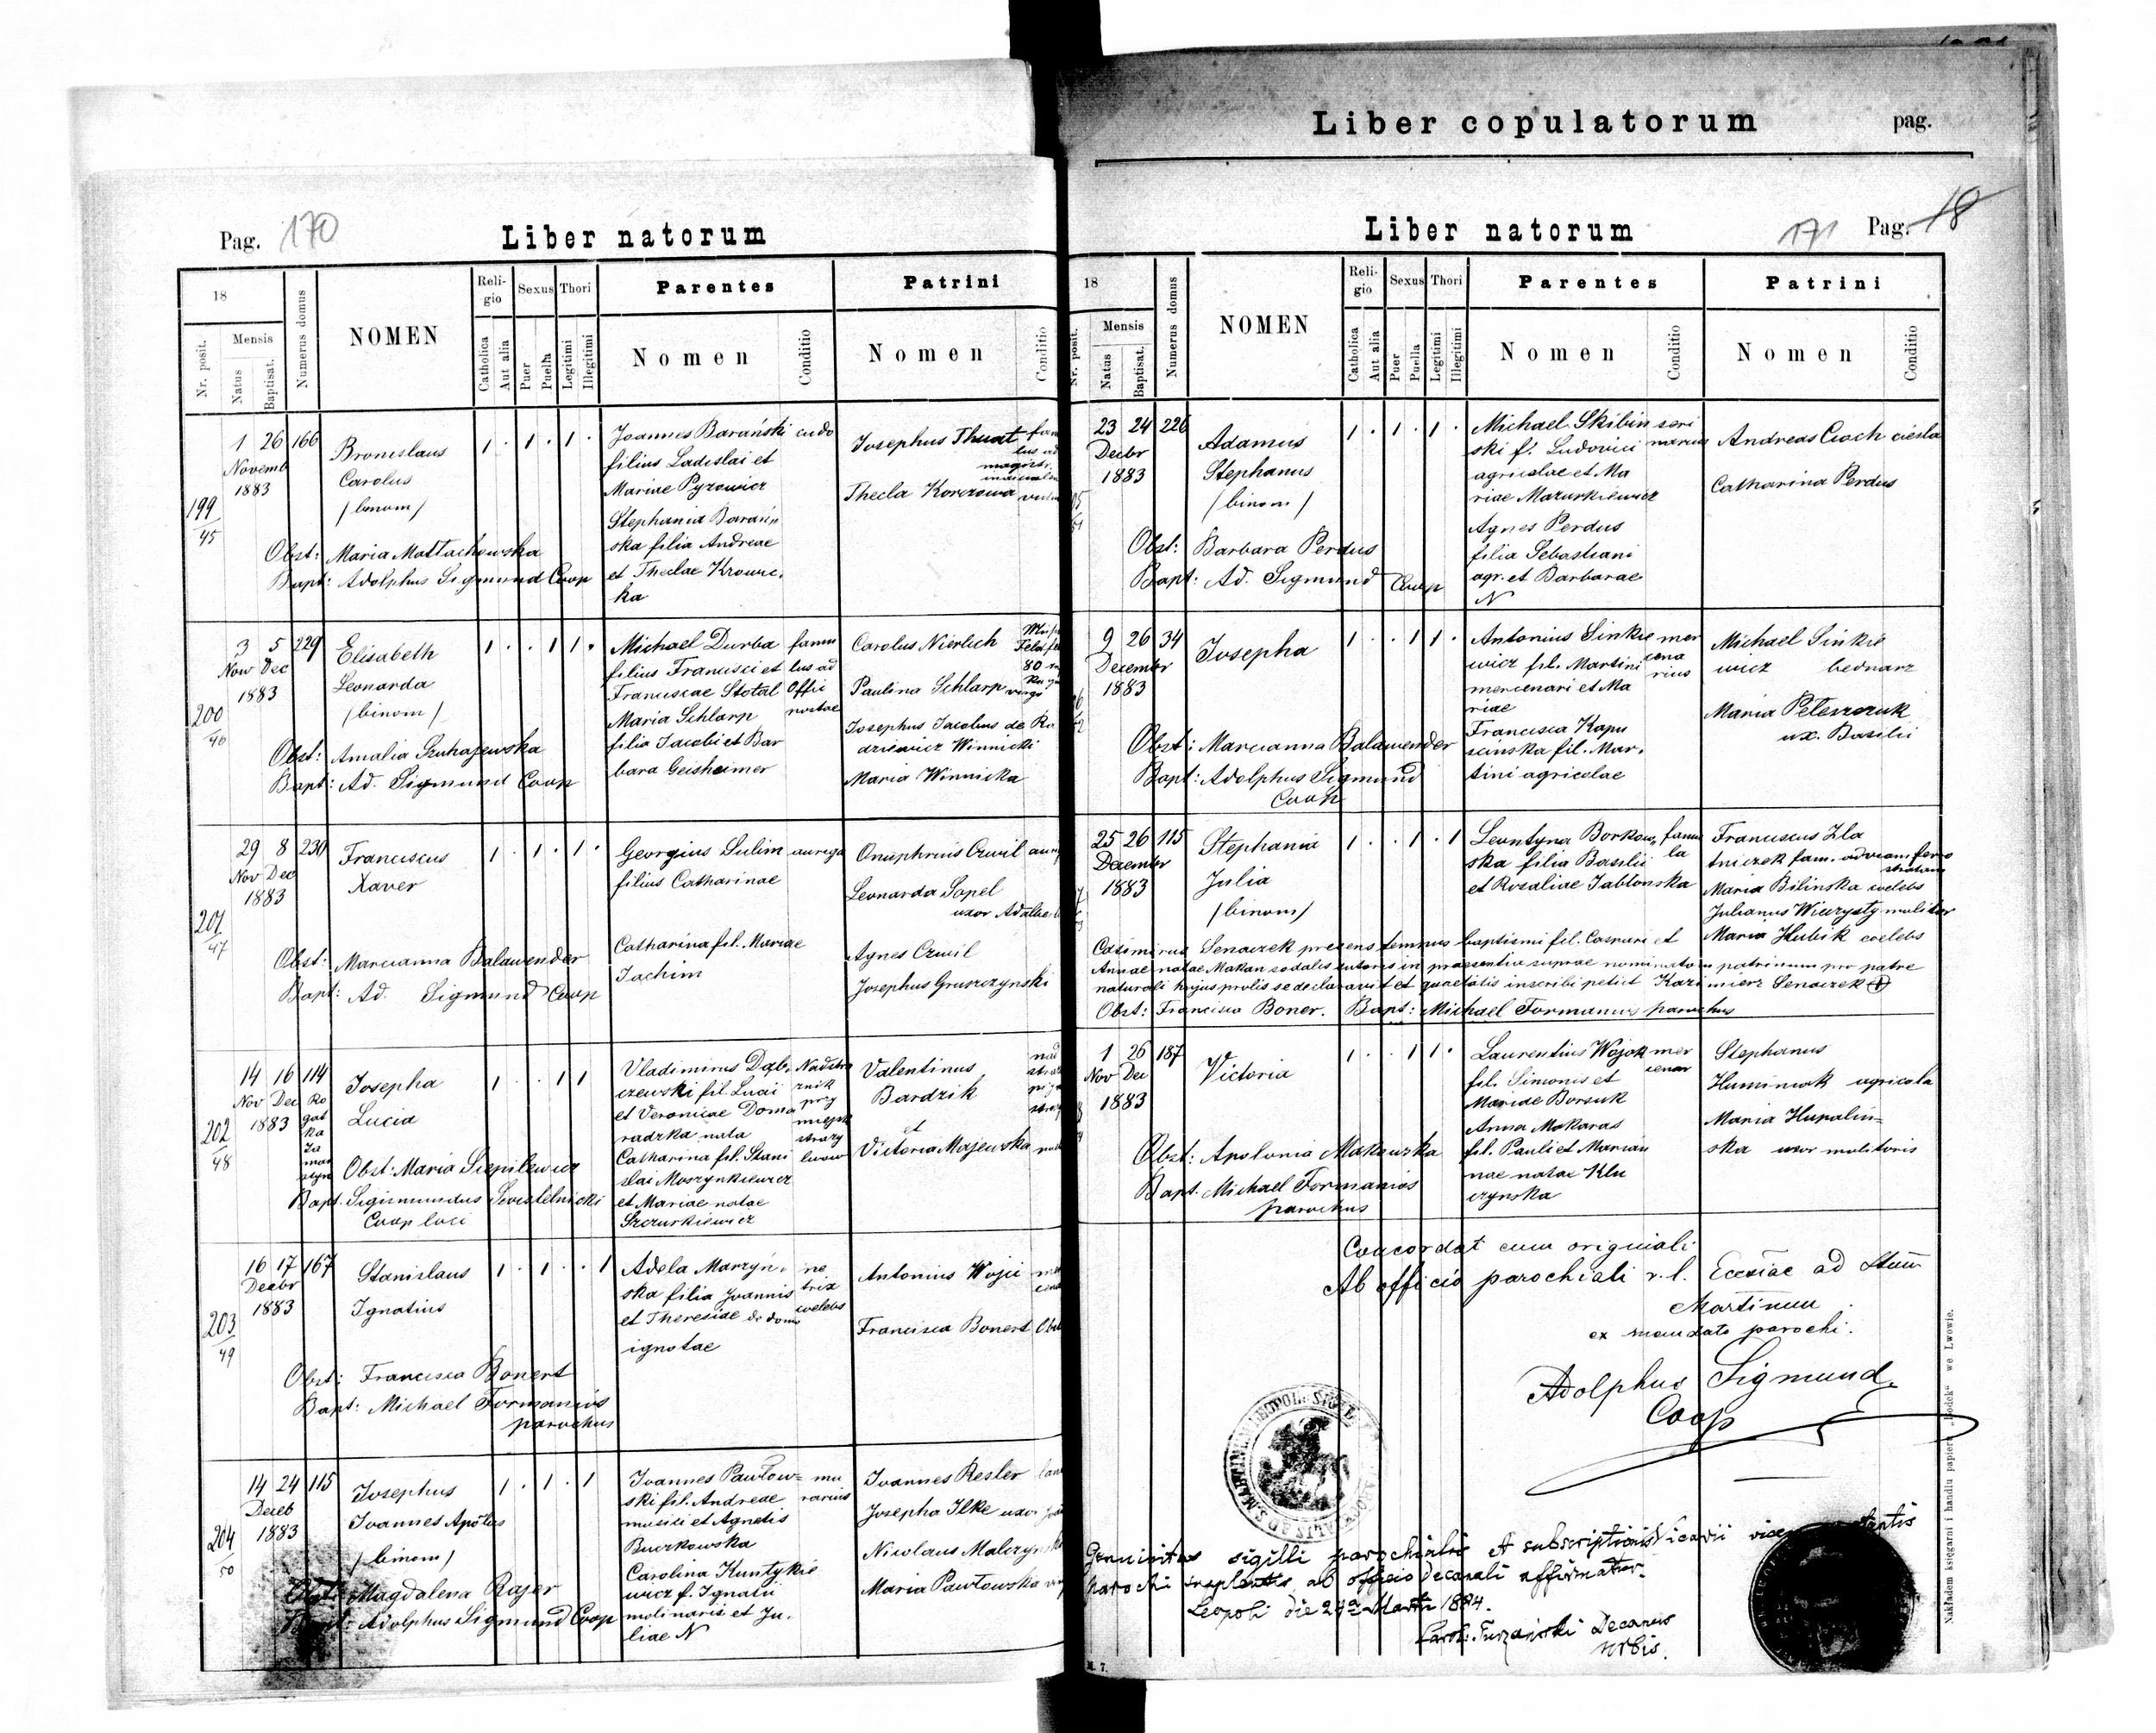 Liber copulatorum
pag.
Pag. 170
Liber natorum
18
Nr. posit.
Mensis
Natus
Baptisat.
Numerus domus
NOMEN
Religio
Catholica
Aut alia
Sexus
Puer
Puella
Thori
Legitimi
Illegitimi
Parentes
Nomen
Conditio
Patrini
Nomen
Conditio
199/45
1 26 166
Novemb
1883
Bronislaus
Carolus
/binom/
1 . 1 . 1 .
Joannes Barański cudo
filius Ladislai et
Mariae Pyrowicz
Stephania Barań
ska filia Andreae
et Theclae Krowic
ka
Josephus Thuat
Thecla Korczowa
Obst: Maria Mattachowska
Bapt: Adolphus Sigmund Coop
200/46
3 5 229
Nov Dec
1883
Elisabeth
Leonarda
/binom/
1 . . 1 1 .
Michael Durba famu
filius Francisci et lus ad
Franciscae Stotal Offic
Maria Schlarp
filia Jacobi et Bar
bara Geisheimer
Carolus Nierlich
Paulina Schlarp virgo
Josephus Jacobus de Ra
dziewicz Winnicki
Maria Winnicka
Obst: Amalia
Bapt: Ad. Sigmund Coop
201/47
29 8 230
Nov Dec
1883
Franciscus
Xaver
1 . 1 . 1 .
Georgius Sulim auriga
filius Catharinae
Catharina fil. Mariae
Jachim
Onuphrius Cwil
Leonarda Sopel
uxor
Agnes Cwil
Josephus Gruszczynski
Obst: Marcianna Balawender
Bapt: Ad. Sigmund Coop
202/48
14 16 114
Nov Dec
1883
Ro
gat
ka
Josepha
Lucia
1 . . 1 1
Vladimirus Dąb
czewski fil. Lucii
et Veronicae Doma
radzka nata
Catharina fil. Stani
slai Moszynkiewicz
et Mariae natae
Szczurkiewicz
Valentinus
Bardzik
et
Victoria Majewska
Obst: Maria
Bapt. Sigismundus
Coop loci
203/49
16 17 167
Decbr
1883
Stanislaus
Ignatius
1 . 1 . . 1
Adela Marzyń
ska filia Joannis
et Theresiae de domo
ignotae
ne
trix
coelebs
Antonius Wojci
Francisca Bonert
Obst: Francisca Bonert
Bapt: Michael Formanios
parochus
204/50
14 24 115
Deceb
1883
Josephus
Joannes Apostolus
/binom/
1 . 1 . 1
Joannes Pawłow= mu
ski fil. Andreae rarius
musici et Agnetis
Buczkowska
Carolina Kuntykie
wicz f. Ignatii
molinaris et Ju
liae N
Joannes Resler
Josepha Ilke uxor
Nicolaus Malczyn
Maria Pawłowska
Magdalena Rajer
Adolphus Sigmund Coop
Liber natorum
171 Pag. 18
18
Nr. posit.
Mensis
Natus
Baptisat.
Numerus domus
NOMEN
Religio
Catholica
Aut alia
Sexus
Puer
Puella
Thori
Legitimi
Illegitimi
Parentes
Nomen
Conditio
Patrini
Nomen
Conditio
23 24 226
Decbr
1883
Adamus
Stephanus
/binom/
1 . 1 . 1 .
Michael Skibin
ski f. Ludovici
agricolae et Ma
riae Mazurkiewicz
Agnes Perdus
filia Sebastiani
agr. et Barbarae
N
Andreas Cioch ciesla
Catharina Perdus
Obst: Barbara Perdus
Bapt: Ad. Sigmund Coop
9 26 34
Decembr
1883
Josepha
1 . . 1 1 .
Antonius Sinkie mer
wicz fil. Martini cena
mercenari et Ma rius
riae
Francisca Kapu
scinska fil. Mar
tini agricolae
Michael Sinkie
wicz bednarz
Maria Peleszczuk
ux. Basilii
Obst: Marcianna Balawender
Bapt: Adolphus Sigmund
Coop
25 26 115
December
1883
Stephania
Julia
/binom/
1 . . 1 . 1
Leontyna Borkow famu
ska filia Basilii la
et Rozaliae Jabłonska
Franciscus Zla
tniczek fam. ad viam ferro
stratam
Maria Bilinska coelebs
Julianus Wieczysty molitor
Maria Hubik coelebs
Casimirus Senaczek presens temnus baptismi fil. Caspari et
Annae natae Makan sodalis sutoris in praesentia suprae nominatorum patrinum pro patre
naturali hujus prolis se declaravit et qua talis inscribi petiit Kazimierz Senaczek
Obst: Francisca Boner. Bapt: Michael Formanios parochus
1 26 187
Nov Dec
1883
Victoria
1 . . 1 1 .
Laurentius Wojok mer
fil. Simonis et cenar
Mariae Borsuk
Anna Makaras
fil. Pauli et Marian
nae natae Klu
czynska
Stephanus
Huminiok agricola
Maria Hupalin=
ska uxor molitoris
Obst: Apolonia Makowska
Bapt. Michael Formanios
parochus
Concordat cum originali
Ab officio parochiali r. l. Ecclesiae ad Stum
Martinum
ex mandato parochi.
Adolphus Sigmund
Coop
Genuinitas sigilli parochialis et subscriptionis Vicarii vices
parochi ab officio Decanali affirmatur.
Leopoli die 24a Martii 1884.
Decanus
Urbis.
M. 7.
Nakładem księgarni i handlu papieru „Bodek“ we Lwowie.